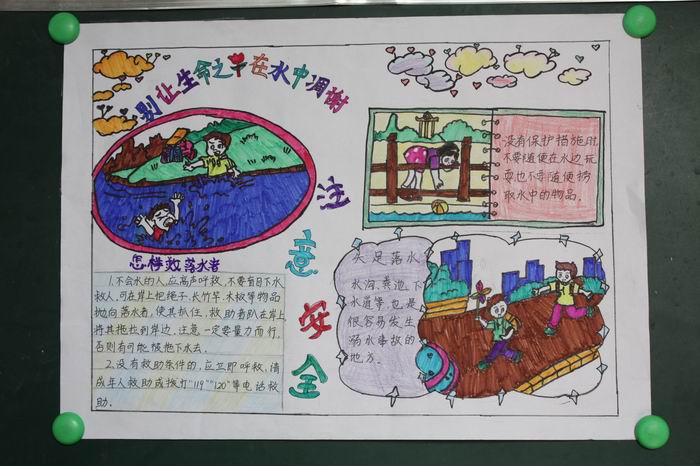 别让生命之花在水中凋谢
注意安全
怎样救落水者
1.不会水的人,应高声呼救,不要盲目下水
救人,可在岸上把绳子、长竹竿、木板等物品
抛向落水者,使其抓住,救助者趴在岸上
将其拖拉到岸边,注意一定要量力而行,
否则有可能被拖下水去。
2.没有救助条件的,应立即呼救,请
成年人救助或拨打"119""120"等电话救
助。
没有保护措施时,
不要随便在水边玩
耍也不要随便捞
取水中的物品。
失足落水
水沟、粪池、下
水道等,也是
很容易发生
溺水事故的
地方。